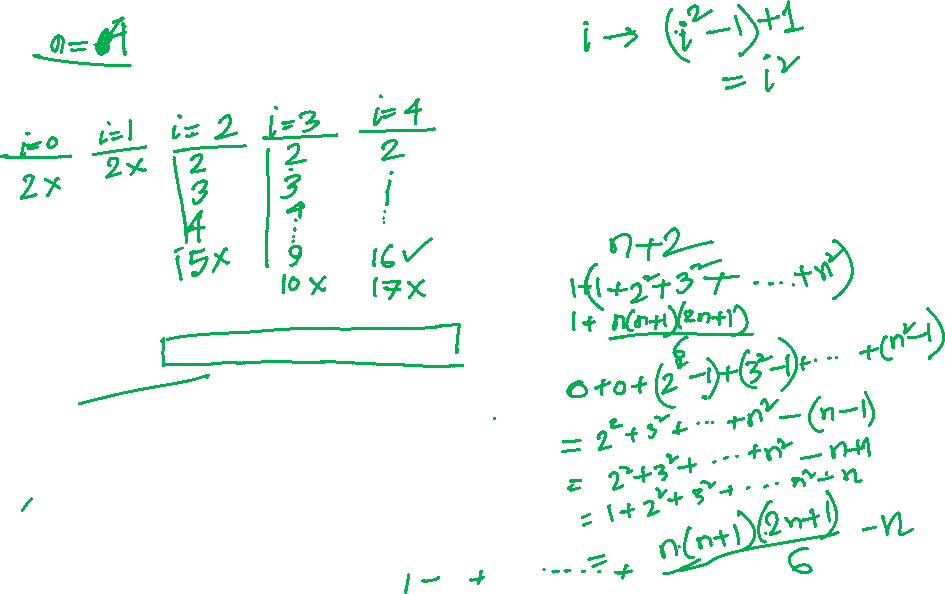 n=4
i → (i²-1)+1
= i²
i=0 i=1 i=2 i=3 i=4
2x 2x 2 2 2
3 3
4 4
⋮ ⋮ ⋮
5x 9 16✓
10x 17x
n+2
1+(1+2²+3²+.....+n²)
1+ n(n+1)(2n+1)
6
0+0+(2²-1)+(3²-1)+...+(n²-1)
= 2²+3²+...+n²-(n-1)
= 2²+3²+...+n²-n+1
= 1+2²+3²+....n²-n
= n(n+1)(2n+1)/6 -n
1- + ......+